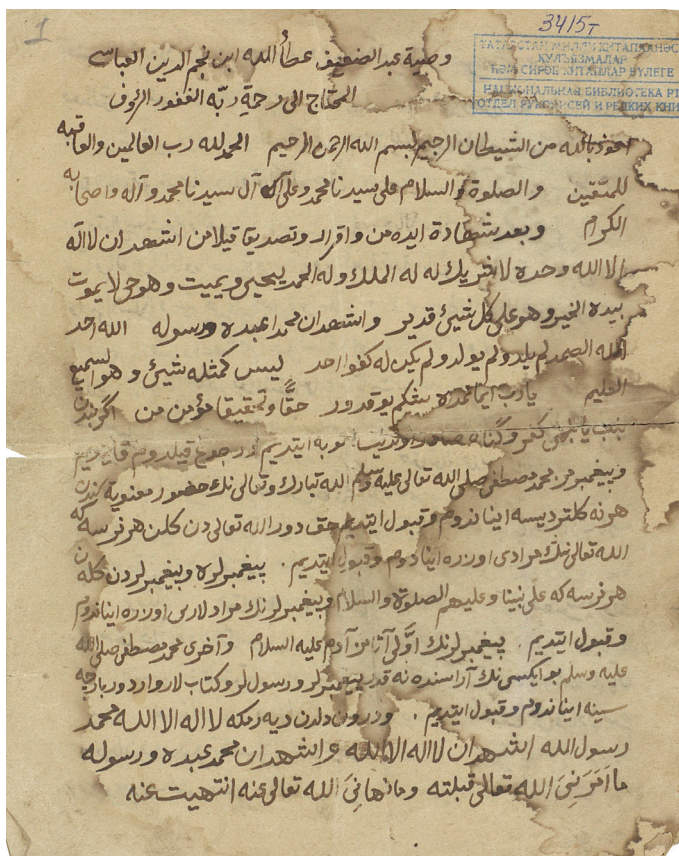 1
3415т
ТАТАРСТАН МИЛЛИ КИТАПХАНӘСЕ
КУЛЪЯЗМАЛАР
ҺӘМ СИРӘК КИТАПЛАР БҮЛЕГЕ
НАЦИОНАЛЬНАЯ БИБЛИОТЕКА РТ
ОТДЕЛ РУКОПИСЕЙ И РЕДКИХ КНИГ
وصية عبد الضعيف عطأ الله ابن نجم الدين العباسى
المحتاج الى رحمة ربه الغفور الرؤف
اعوذ بالله من الشيطان الرجيم بسم الله الرحمن الرحيم الحمد لله رب العالمين والعاقبه
للمتقين والصلوة والسلام على سيدنا محمد وعلى آل سيدنا محمد وآله واصحابه
الكرام وبعد شهادة ايده من واقرار وتصديق قيلامن اشهد ان لا اله
الا الله وحده لا شريك له له الملك وله الحمد يحيى ويميت وهو حى لا يموت
بيده الخير وهو على كل شيئ قدير واشهد ان محمدا عبده ورسوله الله احد
الله الصمد لم يلد ولم يولد ولم يكن له كفوا احد ليس كمثله شيئ وهو السميع
العليم يارب شكم يوقدور حقًّا وتحقيقا مؤمن من اگر بندن
توبه ايتديم رجوع قيلدوم
وپيغمبرمز محمد مصطفى صلى الله تعالى عليه وسلم الله تبارك وتعالى نك حضور معنوية سندن
هر نه كلتردیسه ايناندوم وقبول ايتديم حق دور الله تعالى دن كلن هر نرسه كه
الله تعالى نڭ مرادى اوزره ايناندوم وقبول ايتديم . پيغمبرلره وپيغمبرلردن كله ن
هر نرسه كه على نبينا وعليهم الصلوة والسلام وپيغمبرلرنك مرادلارى اوزره ايناندوم
وقبول ايتديم . پيغمبرلرنك اوّلى آتامز آدم عليه السلام وآخرى محمد مصطفى صلى الله
عليه وسلم بو ايكسى نك آراسنده نه قدر پيغمبرلر ورسول لر وكتاب لار واردور بارچه
سينه ايناندوم وقبول ايتديم . ودرون دلدن ديه رمكه لا اله الا الله محمد
رسول الله اشهد ان لا اله الا الله واشهد ان محمد عبده ورسوله
ما امرنى الله تعالى قبلته وما نهانى الله تعالى عنه انتهيت عنه